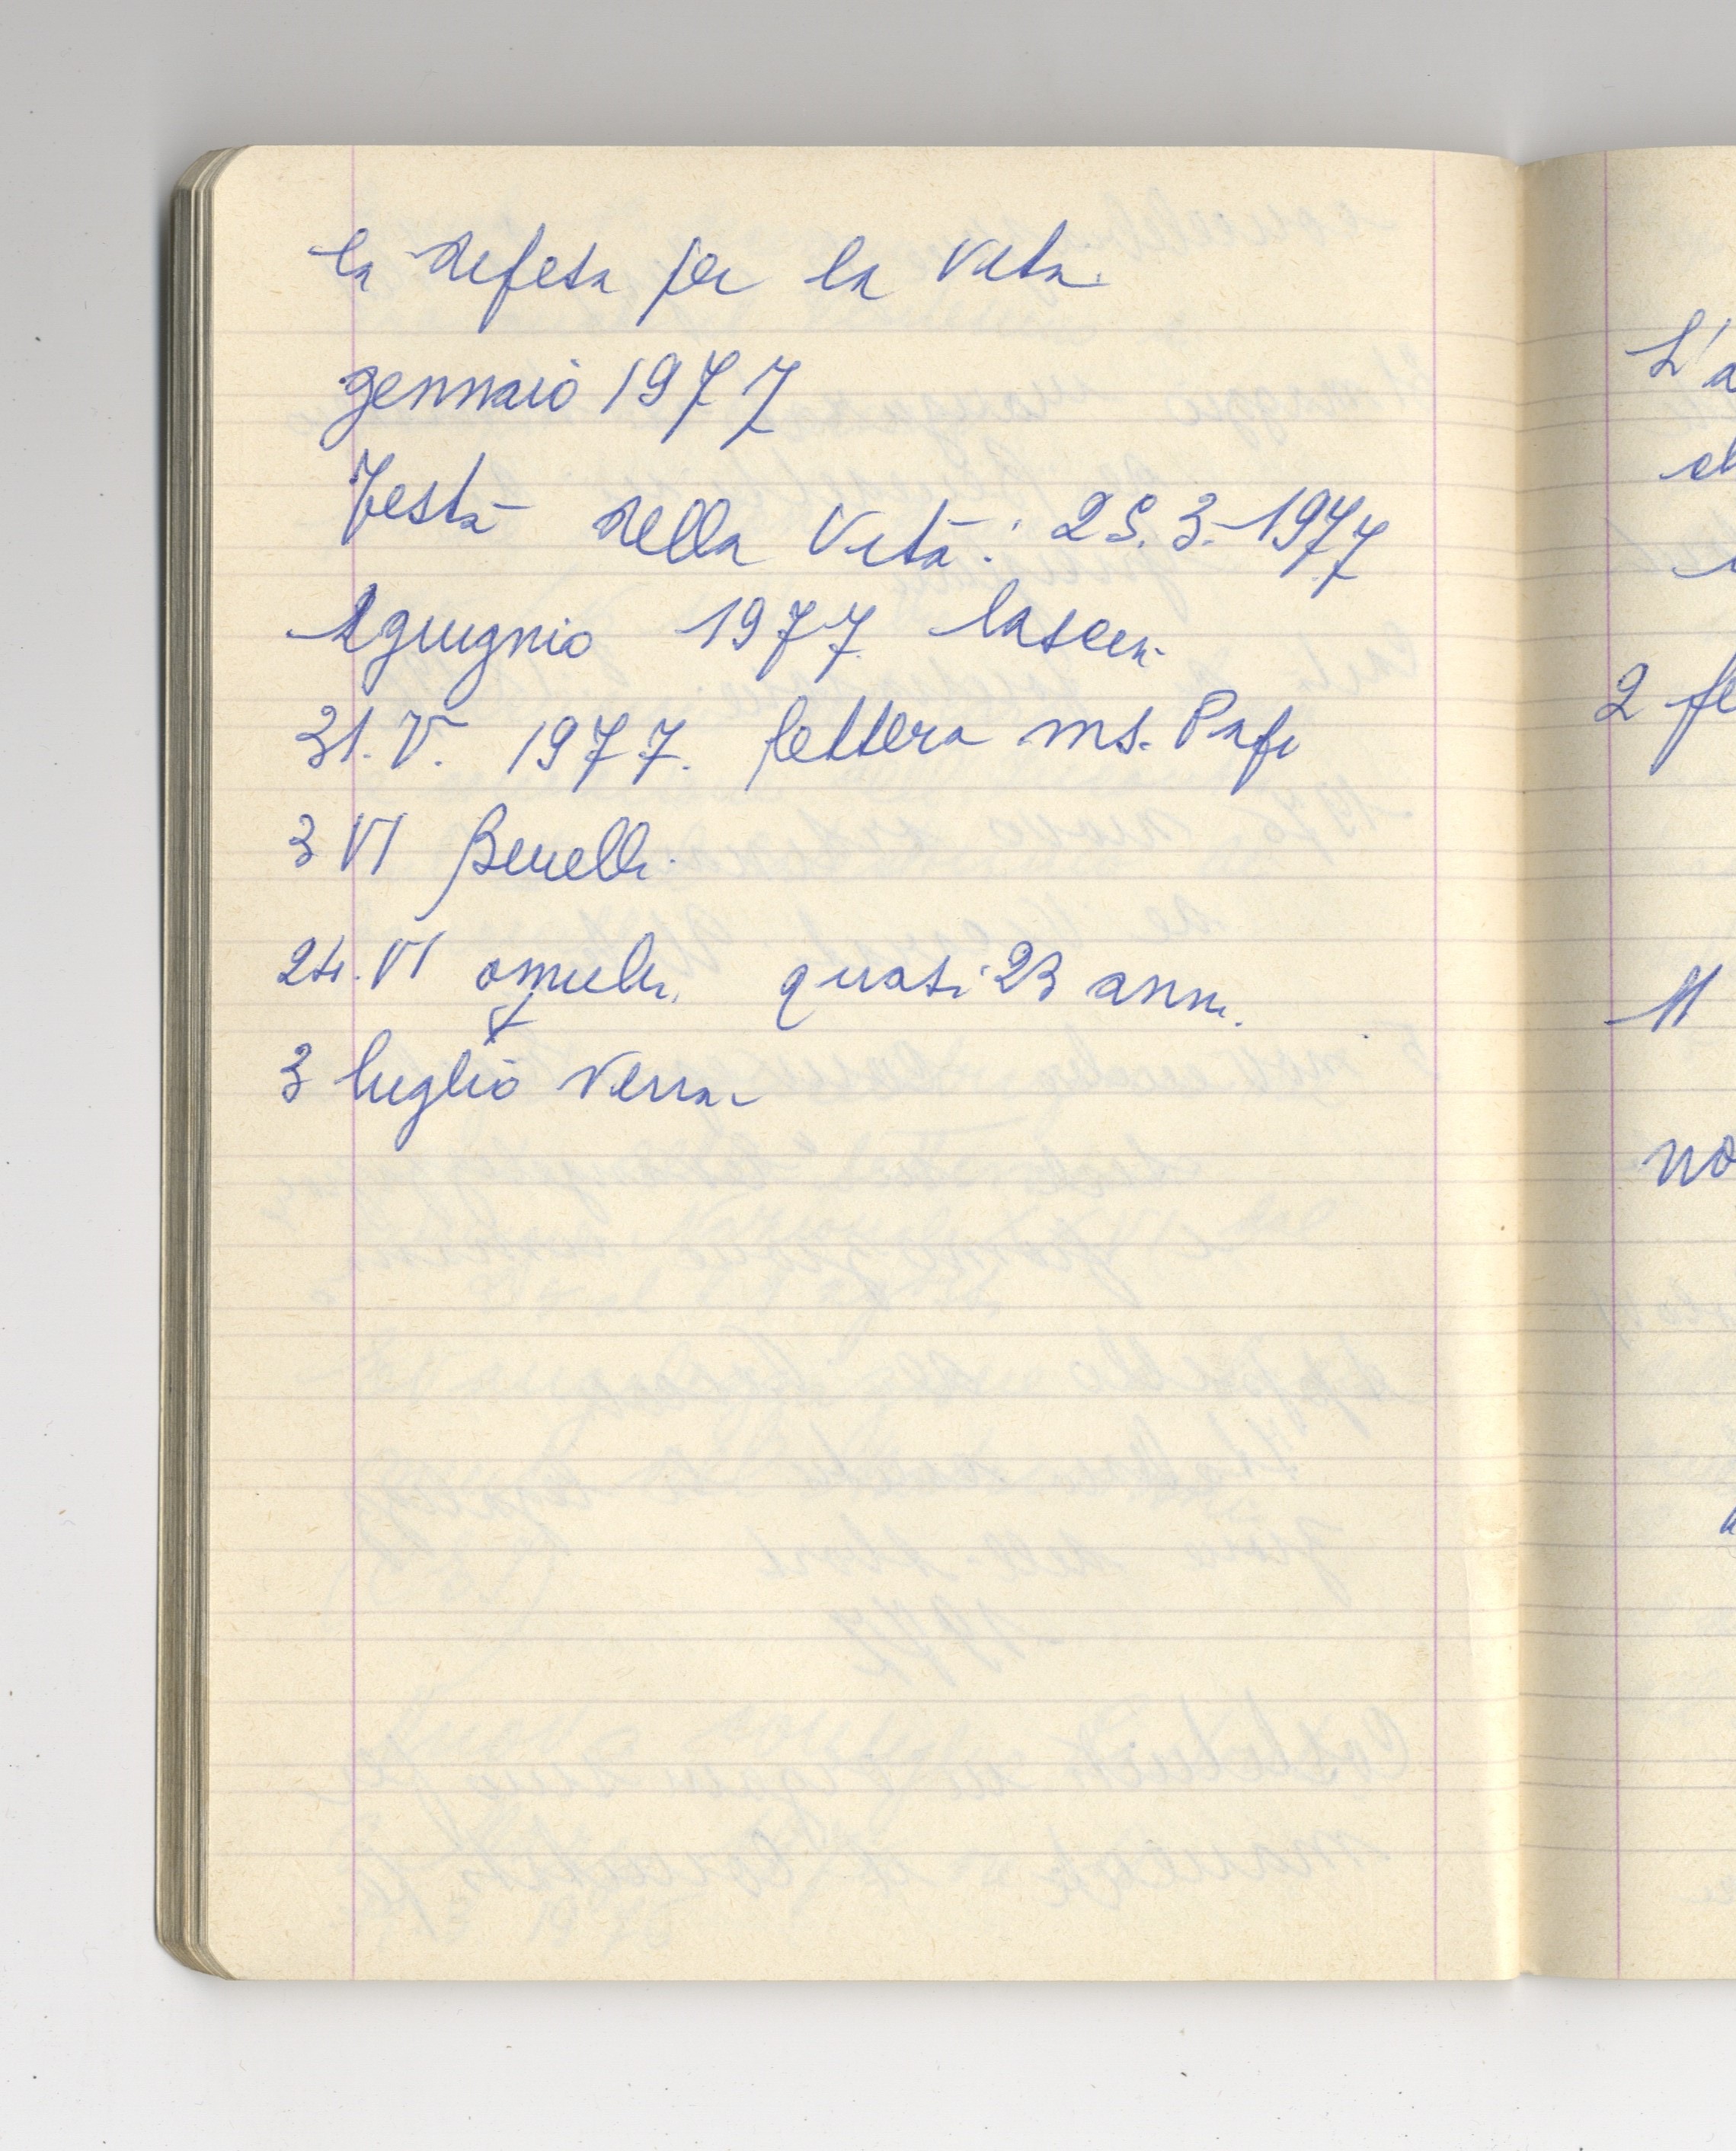 la difesa per la vita.
gennaio 1977
Festa della Vita: 25.3.1977
giugnio 1977 lascen.
31.V. 1977. lettera ms. Pafi
3 VI Benelli.
24.VI quasi 23 anni.
3 luglio Verra.
L'a
2 fe
11
no